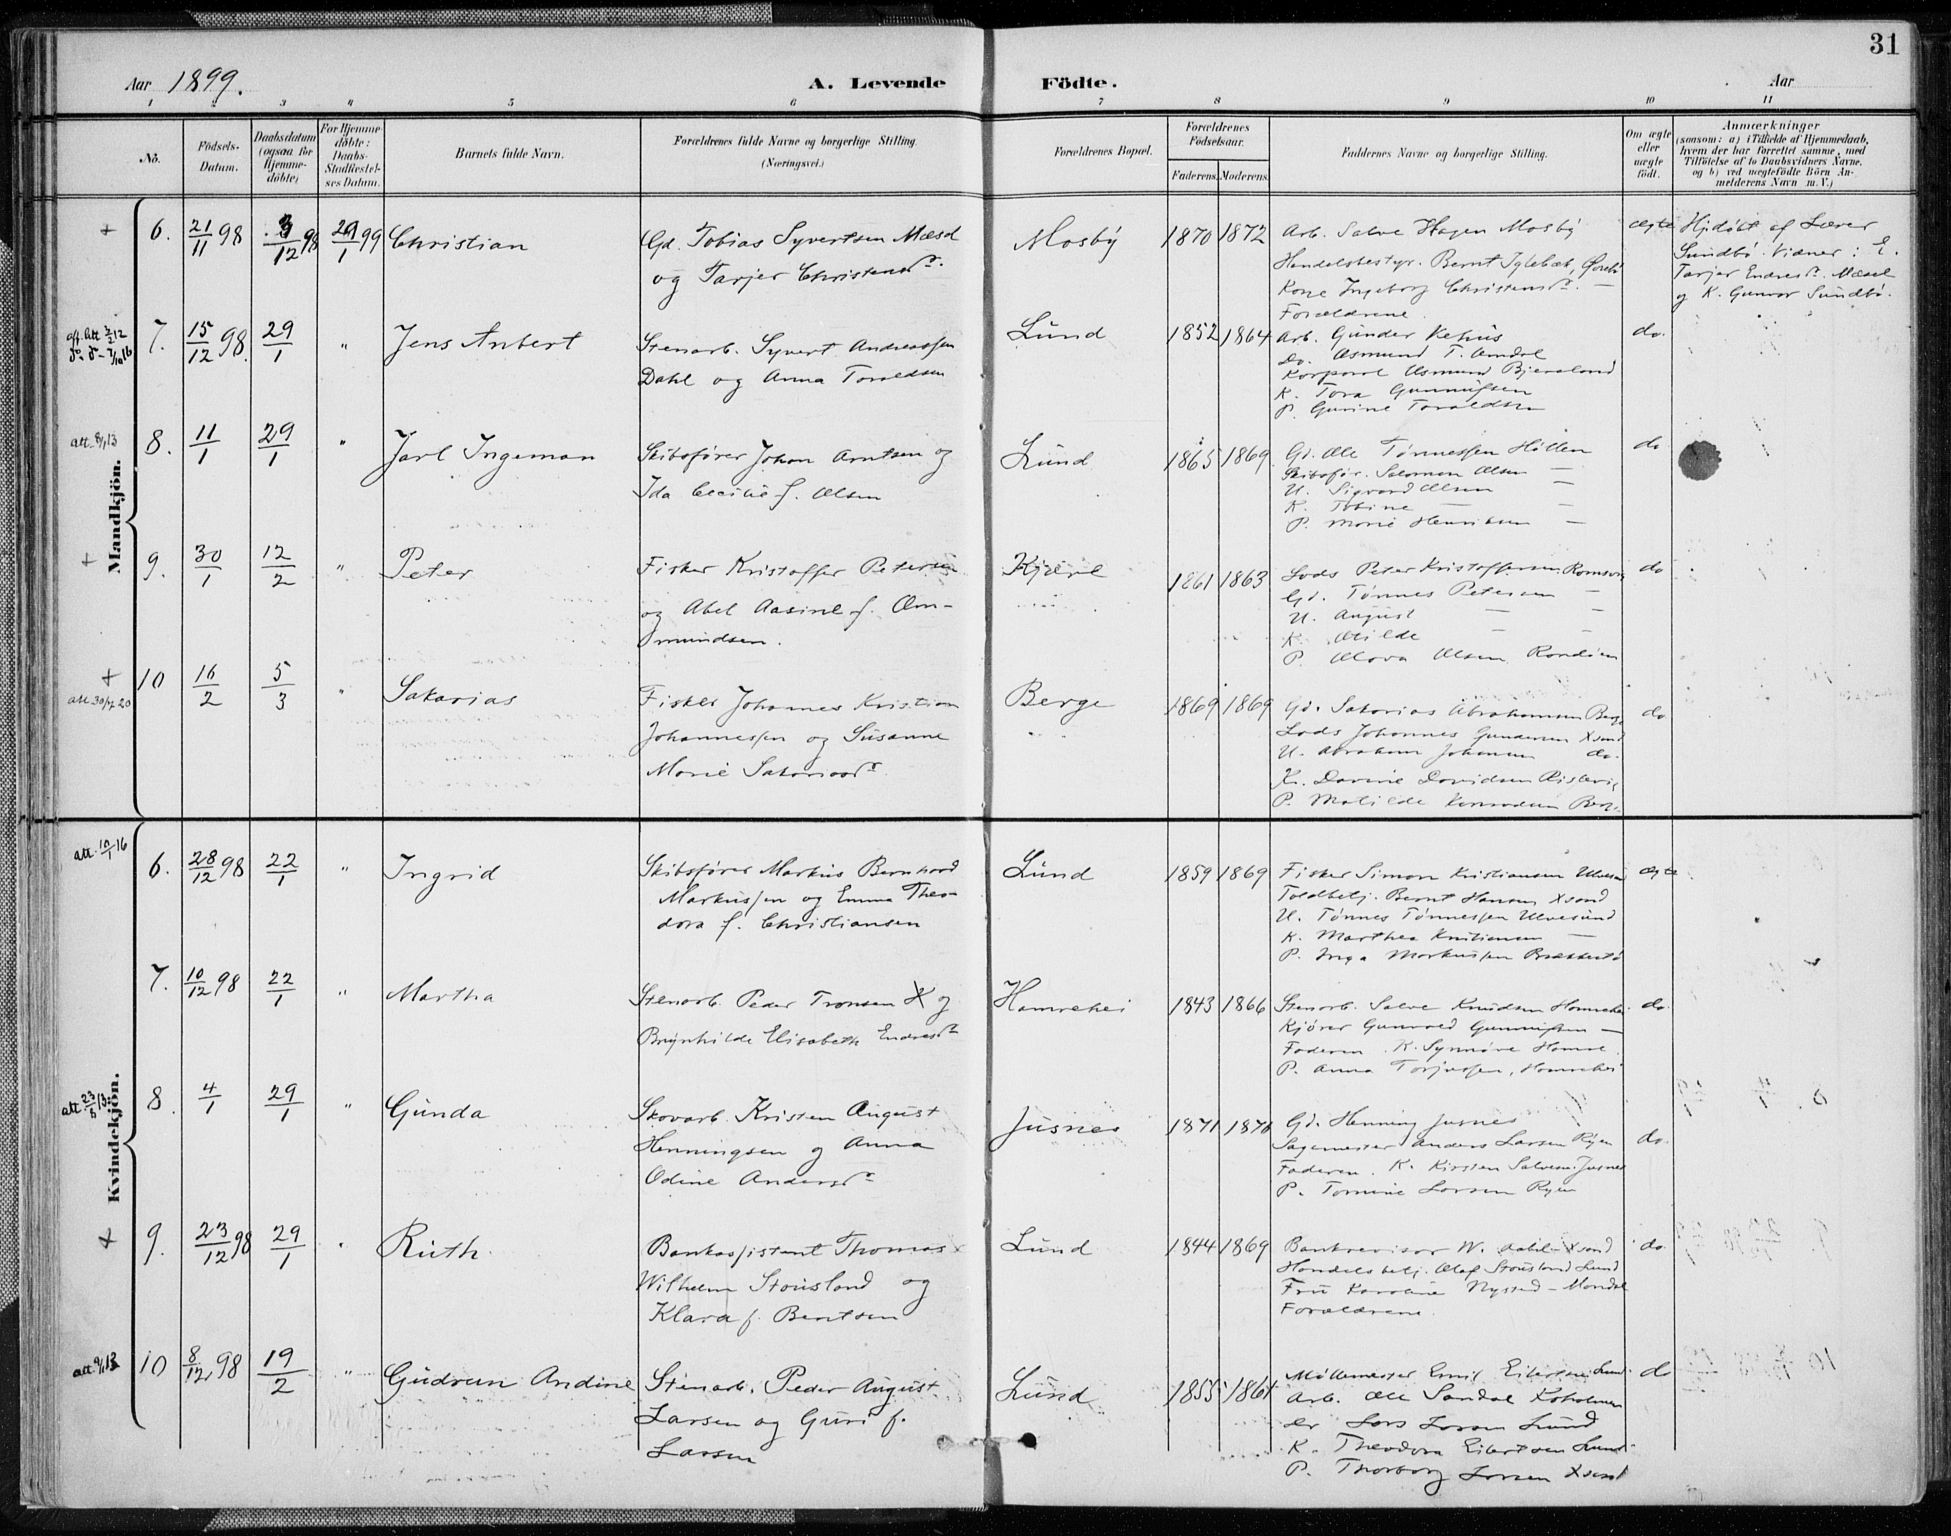 31
Aar 1899. A. Levende Födte. Aar
1 2 3 4 5 6 7 8 9 10 11
No.
Födsels-Datum.
Daabsdatum (ogsaa for Hjemme-döbte)
For Hjemme-döbte: Daabs-Stadfæstel-ses Datum.
Barnets fulde Navn.
Forældrenes fulde Navne og borgerlige Stilling.
(Næringsvei.)
Forældrenes Bopæl.
Forældrenes Födselsaar.
Faderens. Moderens.
Faddernes Navne og borgerlige Stilling.
Om ægte eller uægte födt.
Anmærkninger
(saasom: a) i Tilfælde af Hjemmedaab, hvem der har forrettet samme, med Tilföielse af to Daabsvidners Navne, og b) ved uægtefödte Börn Anmelderens Navn m. V.)
Mandkjön.
+ 6. 21/11 98 3/12 98 29/1 99 Christian
Gd. Tobias Syvertsen Mæsel
og Tarjer Christensdr.
Mosby 1870 1872
Arb. Salve Hagen Mosby
Handelsbestyr. Bernt Iglebæk,
Kone Ingeborg Christensdr. —
Forældrene.
ægte
Hjdøbt af Lærer
Sundbø. Vidner: E.
Tarjer Endresdr. Mæsel
og K. Gunvor Sundbø.
7. 15/12 98. 29/1 " Jens Anbert
Stenarb. Syvert Andreassen
Dahl og Anna Torredsen
Lund 1852 1864
Arb. Gunder Kehus
Do. Asmund T. Omdal
Korporal Asmund Bjeraland
K. Tora Gunnufsen
P. Gurine Toraldsen
do.
att. 8/1 13 8. 11/1 29/1 " Jarl Ingeman
Skibsfører Johan Arntsen og
Ida Cecilie f. Olsen
Lund 1865 1869
Gd. Ole Tønnessen Hållen
Skibsfør. Salomon Olsen —
U. Sigvard Olsen —
K. Tobine — —
P. Marie Henriksen —
do
+ 9. 30/1 12/2 " Peter
Fisker Kristoffer Petersen
og Abel Aasine f. Om-
mundsen.
Kjære 1861 1863
Lods Peter Kristoffersen Romsvig
Gd. Tønnes Petersen —
U. August — —
K. Otilde — —
P. Olava Olsen Randøen
do
+ att 30/7 20 10 16/2 5/3 " Sakarias
Fisker Johannes Kristian
Johannessen og Susanne
Marie Sakariasdr.
Berge 1869 1869
Gd. Sakarias Abrahamsen Berge
Lods Johannes Gundersen Xsand
U. Abraham Johansen do.
K. Dorine Davidsen
P. Matilde Konradsen Berge
do
Kvindekjön.
att. 10/1 16 6. 28/12 98 22/1 " Ingrid
Skibsfører Markus Bernhard
Markussen og Emma Theo-
dora f. Christiansen
Lund 1859 1869
Fisker Simon Kristiansen
Toldbetj. Bernt Hansen Xsand
U. Tønnes Tønnessen Ulvesund
K. Marthea Kristiansen —
P. Inga Markussen
ægte
7. 10/12 98 22/1 " Martha
Stenarb. Peder Tronsen X og
Brynhilde Elisabeth Endresdr.
Hamrehei 1843 1866
Stenarb. Salve Knudsen Hamrehei
Kjører Gunvald Gunnufsen —
Faderen. K. Synnøve Hamre.
P. Anna Torjussen, Hamrehei
do.
8. 4/1 29/1 " Gunda
Skovarb. Kristen August
Henningsen og Anna
Odine Andersdr.
Jusnes 1871 1870
Gd. Henning Jusnes
Sagmester Anders Larsen Ryen
Faderen. K. Kirsten Salvesen Jusnes
P. Tomine Larsen Ryen
do.
+ 9. 23/12 98 29/1 " Ruth.
Bankassistent Thomas
Wilhelm Stousland og
Klara f. Bentsen
Lund 1844 1869
Bankrevisor W. Dahl Xsand
Handelsbetj. Olaf Stousland Lund
Fru Karoline Nysted – Mandal
Forældrene.
do.
att. 9/1 13 10 8/12 98 19/2 " Gudrun Andine
Stenarb. Peder August
Larsen og Guri f.
Larsen
Lund 1855 1861
Møllemester Emil Eilertsen Lund
Arb. Ole Sandal Koholmen
do Lars Larsen Lund
K. Theodora Eilertsen Lund.
P. Thorborg Larsen Xsand
do